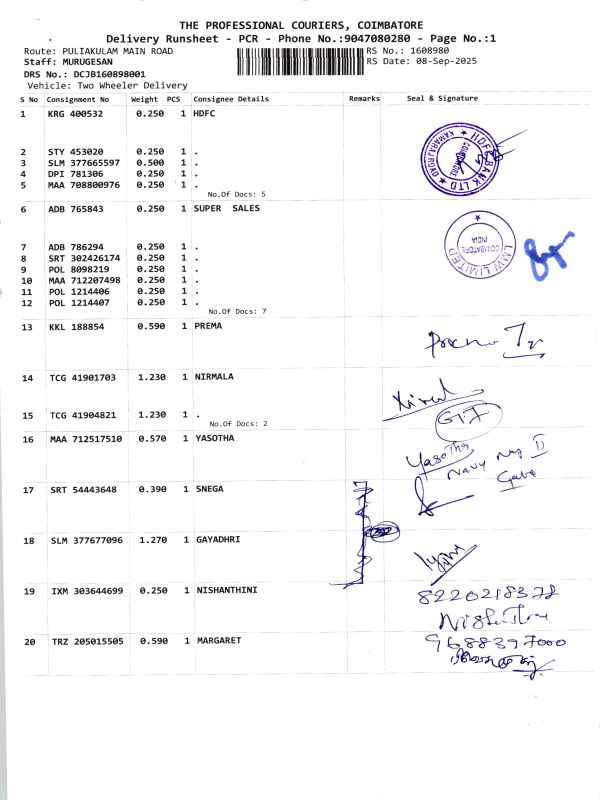 THE PROFESSIONAL COURIERS, COIMBATORE
Delivery Runsheet - PCR - Phone No.:9047080280 - Page No.:1
Route: PULIAKULAM MAIN ROAD RS No.: 1608980
Staff: MURUGESAN RS Date: 08-Sep-2025
DRS No.: DCJB160898001
Vehicle: Two Wheeler Delivery
S No Consignment No Weight PCS Consignee Details Remarks Seal & Signature
1 KRG 400532 0.250 1 HDFC
2 STY 453020 0.250 1 .
3 SLM 377665597 0.500 1 .
4 DPI 781306 0.250 1 .
5 MAA 708800976 0.250 1 .
No.Of Docs: 5
HDFC BANK LTD
KAMARAJ ROAD
COIMBATORE
6 ADB 765843 0.250 1 SUPER SALES
7 ADB 786294 0.250 1 .
8 SRT 302426174 0.250 1 .
9 POL 8098219 0.250 1 .
10 MAA 712207498 0.250 1 .
11 POL 1214406 0.250 1 .
12 POL 1214407 0.250 1 .
No.Of Docs: 7
LMW LIMITED
COIMBATORE
INDIA
13 KKL 188854 0.590 1 PREMA
14 TCG 41901703 1.230 1 NIRMALA
15 TCG 41904821 1.230 1 .
No.Of Docs: 2
16 MAA 712517510 0.570 1 YASOTHA
Yasotha
Navy
17 SRT 54443648 0.390 1 SNEGA
18 SLM 377677096 1.270 1 GAYADHRI
19 IXM 303644699 0.250 1 NISHANTHINI
8220218378
20 TRZ 205015505 0.590 1 MARGARET
9688397000